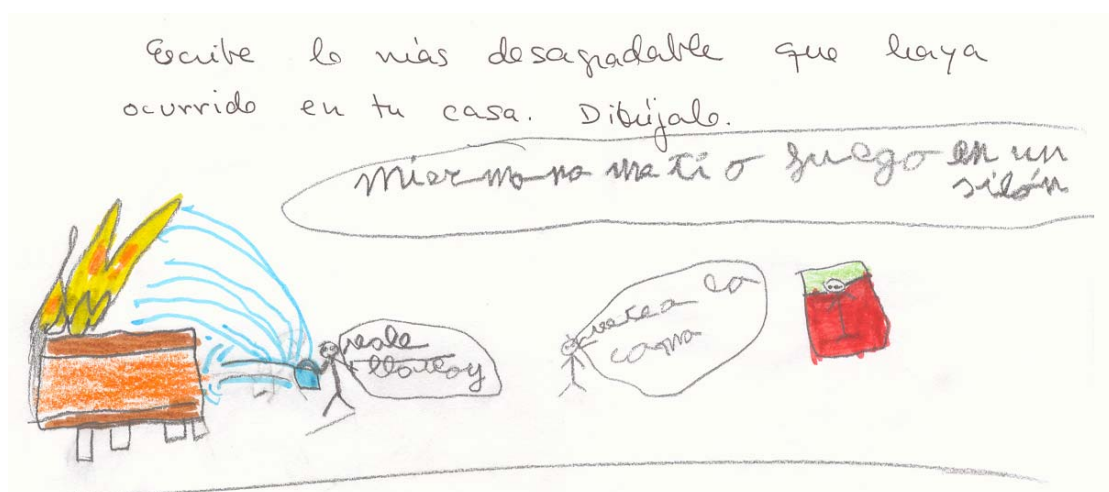 Escribe lo más desagradable que haya
ocurrido en tu casa. Dibújalo.
miermano ma tio fuego en un
silón
vete a la
cama